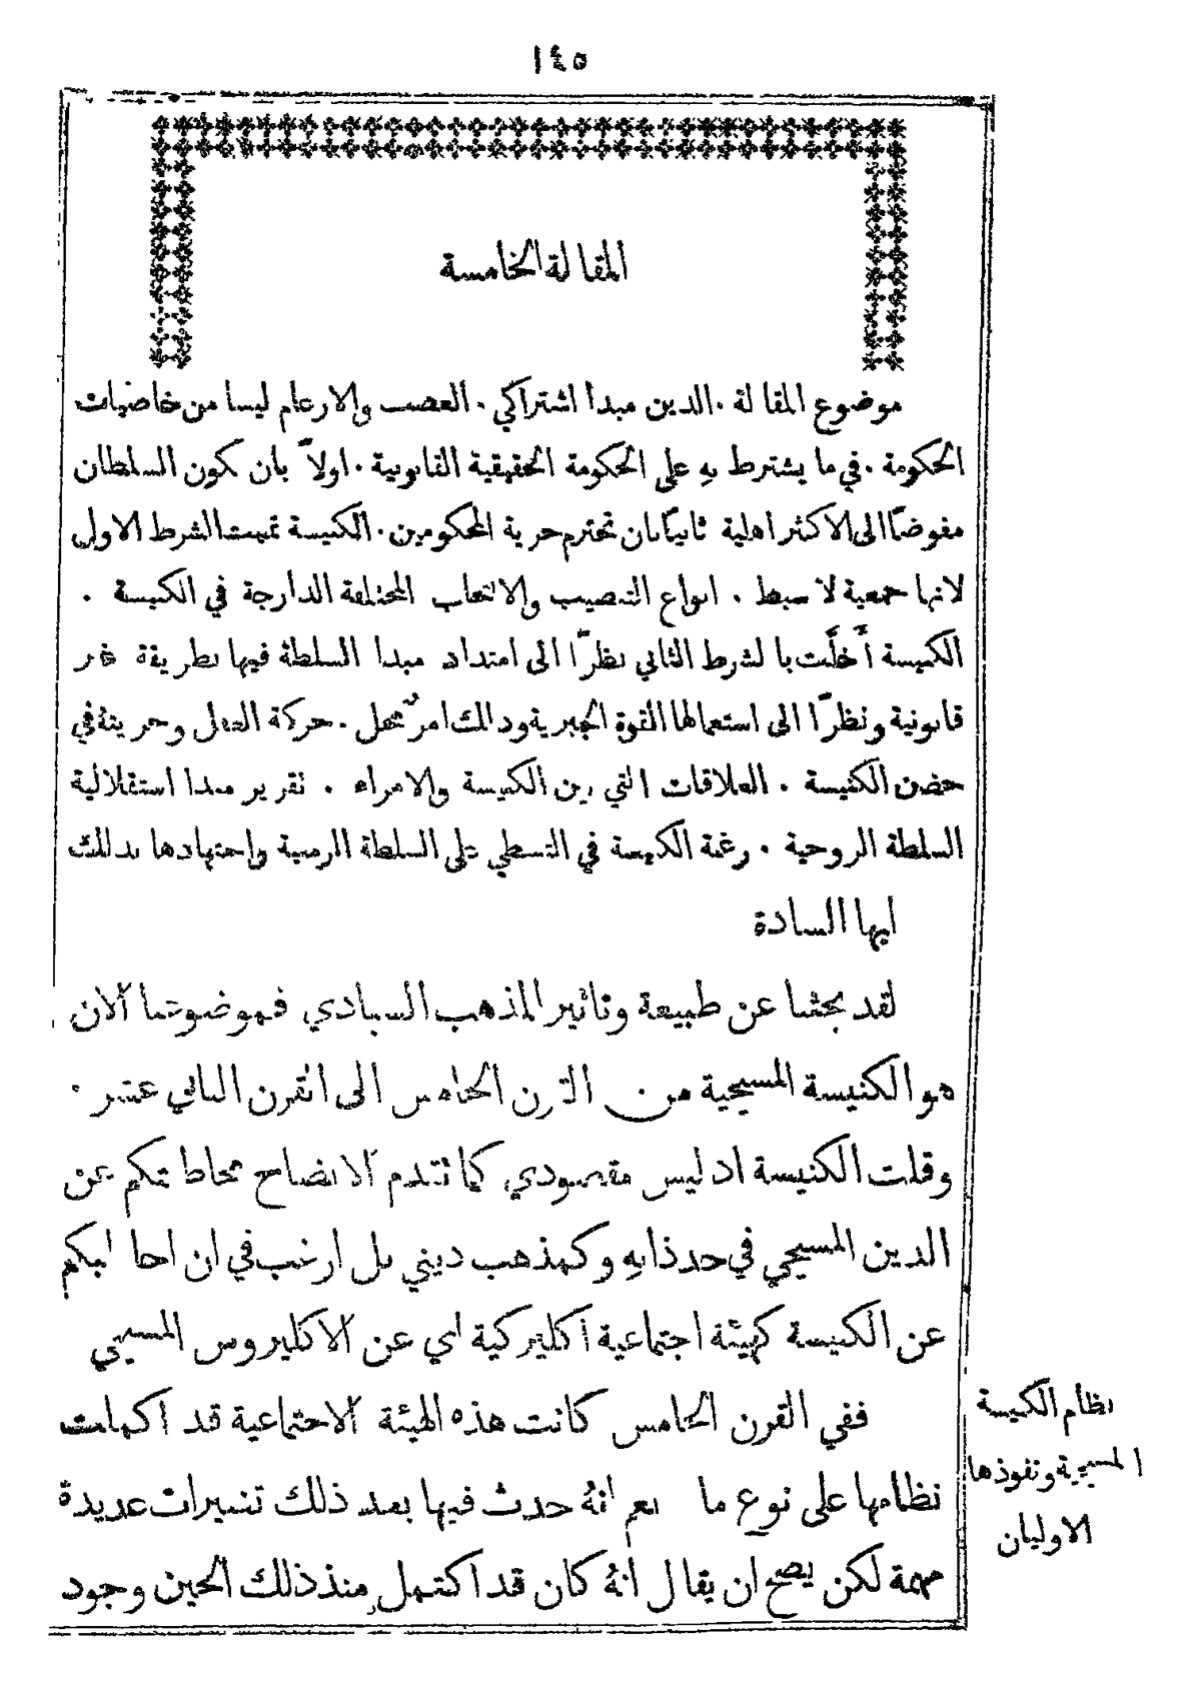 ١٤٥
المقالة الخامسة
موضوع المقالة . الدين مبدأ اشتراكي . الغصب والارغام ليسا من خاصيات
الحكومة . في ما يشترط بهِ على الحكومة الحقيقية القانونية . اولاً بان كون السلطان
مفوضاً الى الاكثر اهلية ثانياً بان تحترم حرية المحكومين . الكنيسة تممت الشرط الاول
لانها جمعية لا سبط . انواع التنصيب والانتخاب المختلفة الدارجة في الكنيسة .
الكنيسة أَخلَّت بالشرط الثاني نظراً الى امتداد مبدا السلطة فيها بطريقة غير
قانونية ونظراً الى استعمالها القوة الجبرية وذلك امرٌ مخل . حركة العقل وحريته في
حضن الكنيسة . العلاقات التي بين الكنيسة والامراء . تقرير مبدا استقلالية
السلطة الروحية . رغبة الكنيسة في التسطي على السلطة الزمنية واجتهادها بذلك
ايها السادة
لقد بحثنا عن طبيعة وتاثير المذهب السيادي فموضوعنا الان
هو الكنيسة المسيحية من القرن الخامس الى القرن الثاني عشر .
وقلت الكنيسة اذ ليس مقصودي كما تقدم الايضاح مخاطبتكم عن
الدين المسيحي في حد ذاتهِ وكمذهب ديني بل ارغب في ان اخاطبكم
عن الكنيسة كهيئة اجتماعية اكليركية اي عن الاكليروس المسيحي
ففي القرن الخامس كانت هذه الهيئة الاجتماعية قد اكملت
نظامها على نوع ما نعم انهُ حدث فيها بعد ذلك تغييرات عديدة
مهمة لكن يصح ان يقال انهُ كان قد اكتمل منذ ذلك الحين وجود
نظام الكنيسة
المسيحية ونفوذها
الاوليان